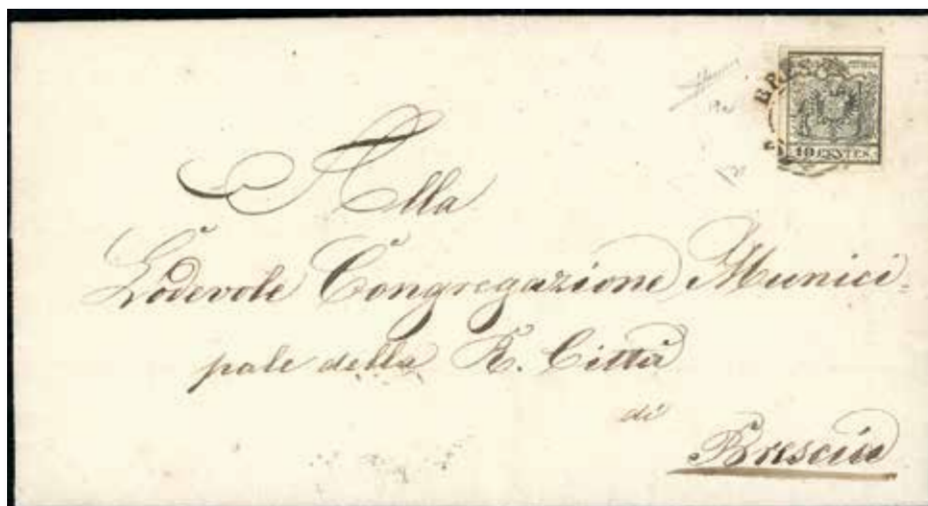 BRESC
10 CENTES.
Alla
Lodevole Congregazione Munici=
pale della R. Città
di
Brescia